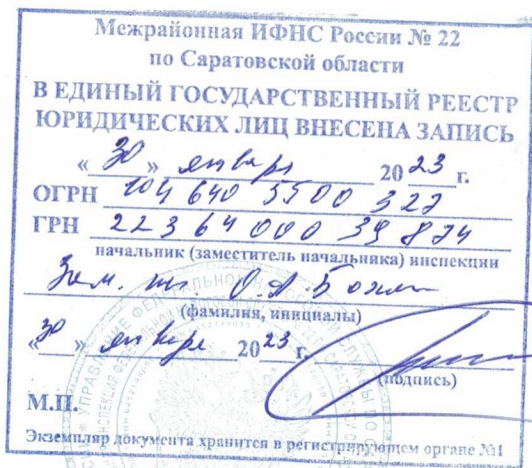 Межрайонная ИФНС России № 22
по Саратовской области
В ЕДИНЫЙ ГОСУДАРСТВЕННЫЙ РЕЕСТР
ЮРИДИЧЕСКИХ ЛИЦ ВНЕСЕНА ЗАПИСЬ
« 30 » января 2023 г.
ОГРН 104 640 5500 327
ГРН 223 64 000 39 874
начальник (заместитель начальника) инспекции
Зам. О.А.
(фамилия, инициалы)
« 30 » января 2023 г.
(подпись)
М.П.
Экземпляр документа хранится в регистрирующем органе №1